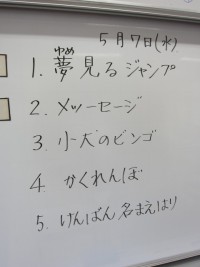 5月7日(水)
ゆめ
1. 夢見るジャンプ
2. メッセージ
3. 小犬のビンゴ
4 かくれんぼ
5. けんばん名まえはり